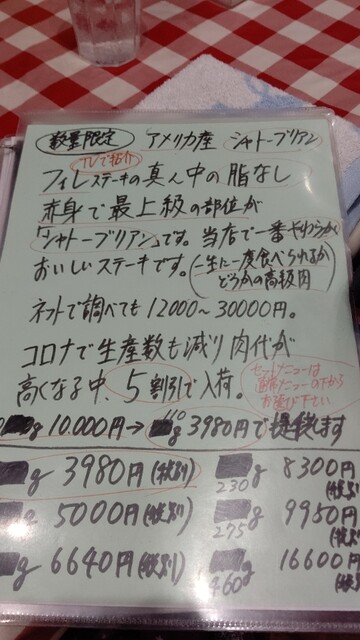 数量限定 アメリカ産 シャトーブリアン
TVで紹介
フィレステーキの真ん中の脂なし
赤身で最上級の部位が
「シャトーブリアン」です。当店で一番やわらかく
おいしいステーキです。(一生に一度食べられるか
どうかの高級肉)
ネットで調べても12000〜30000円。
コロナで生産数も減り肉代が
高くなる中、5割引で入荷。
セットメニューは
通常メニューの下から
お選び下さい
g 10.000円→110g 3980円で提供します
g 3980円(税別)
230g 8300円(税別)
g 5000円(税別)
275g 9950円(税別)
g 6640円(税別)
460g 16600円(税別)